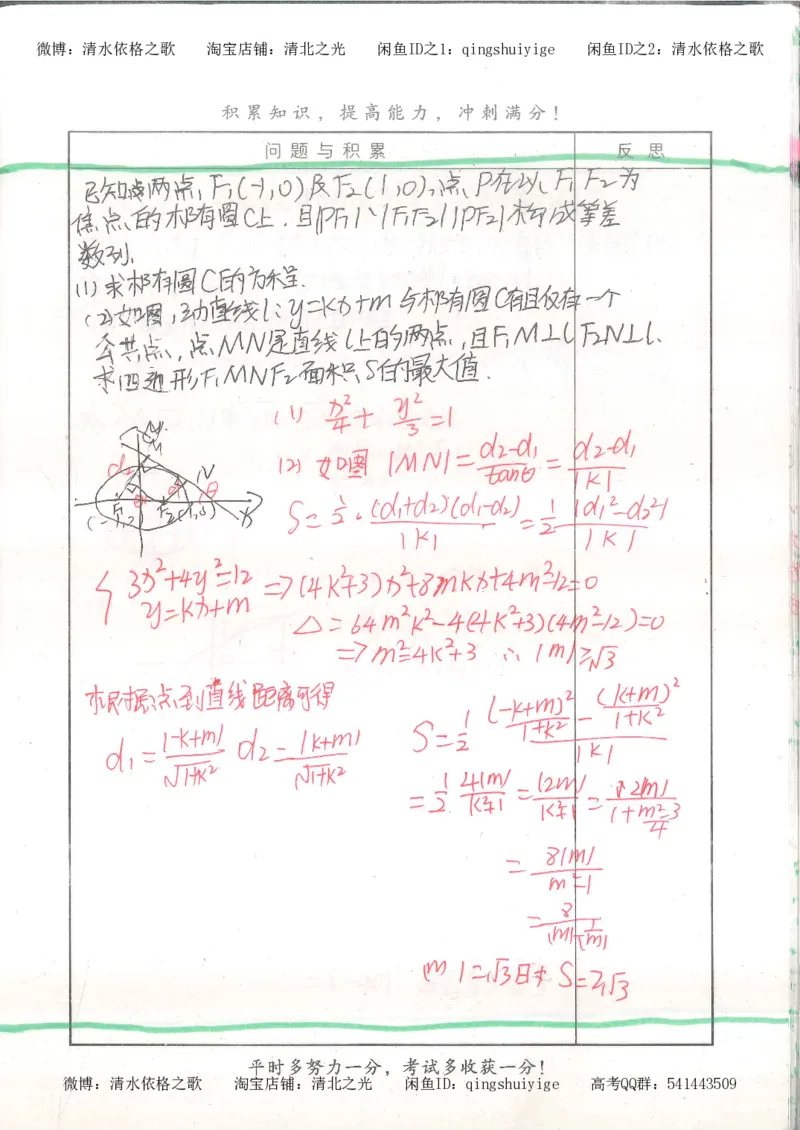 微博：清水依格之歌 淘宝店铺：清北之光 闲鱼ID之1：qingshuiyige 闲鱼ID之2：清水依格之歌
积累知识，提高能力，冲刺满分！
问题与积累 反思
已知两点,F₁(-1,0)及F₂(1,0),点P在以F₁F₂为
焦点的椭圆C上.且|PF₁|、|F₁F₂|、|PF₂|构成等差
数列.
(1)求椭圆C的方程.
(2)如图,动直线l:y=kx+m与椭圆C有且仅有一个
公共点,点MN是直线l上的两点,且F₁M⊥l F₂N⊥l.
求四边形F₁MNF₂面积S的最大值.
(1) x²/4+y²/3=1
(2)如图 |MN|=(d₂-d₁)/tanθ=(d₂-d₁)/|k|
S=1/2·(d₁+d₂)(d₁-d₂)/|k|=1/2 |d₁²-d₂²|/|k|
{3x²+4y²=12 y=kx+m =>(4k²+3)x²+8mkx+4m²-12=0
△=64m²k²-4(4k²+3)(4m²-12)=0
=>m²=4k²+3 ∴|m|≥√3
根据点到直线距离可得
d₁=|-k+m|/√1+k² d₂=|k+m|/√1+k²
S=1/2 ((-k+m)²/(1+k²)-(k+m)²/(1+k²))/|k|
=1/2 4|m|/(k²+1)=|2m|/(k²+1)=|2m|/(1+(m²-3)/4)
=8|m|/(m²+1)
=8/(|m|+1/|m|)
|m|=√3时 S=2√3
平时多努力一分，考试多收获一分！
微博：清水依格之歌 淘宝店铺：清北之光 闲鱼ID：qingshuiyige 高考QQ群：541443509